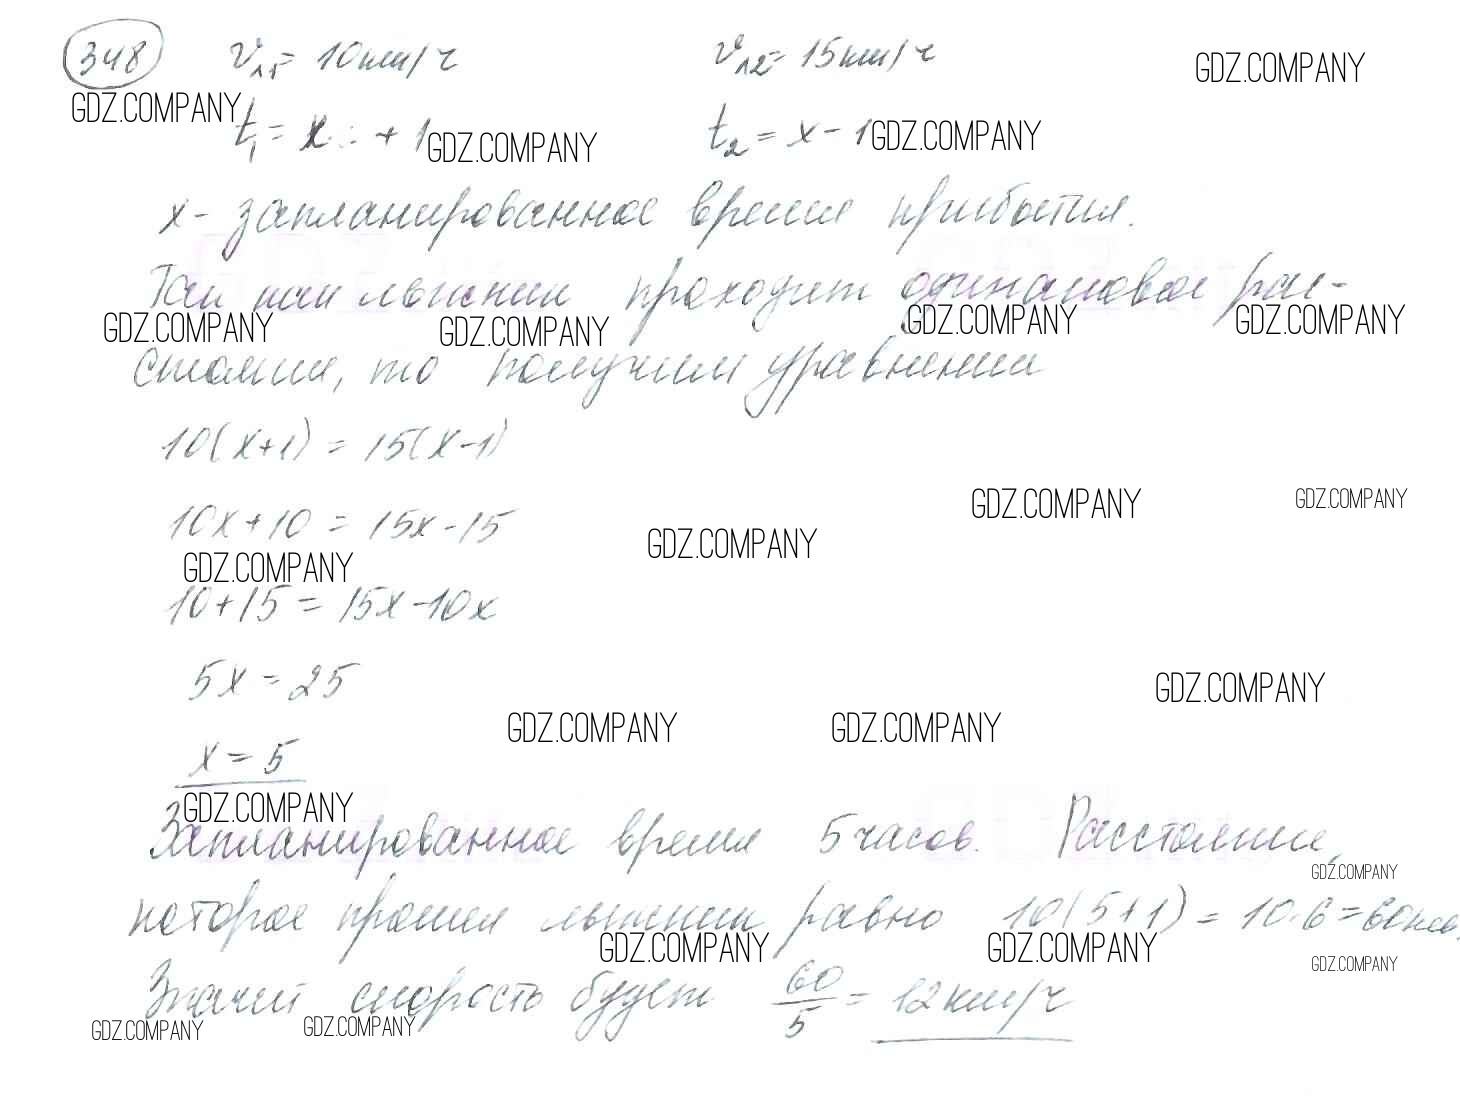 348 v₁₁ = 10 км/ч v₁₂ = 15 км/ч GDZ.COMPANY
GDZ.COMPANY
t₁ = x + 1 GDZ.COMPANY t₂ = x - 1 GDZ.COMPANY
x - запланированное время прибытия.
Так как лыжник проходит одинаковое рас-
GDZ.COMPANY GDZ.COMPANY GDZ.COMPANY GDZ.COMPANY
стояние, то получим уравнение
10(x+1) = 15(x-1)
GDZ.COMPANY GDZ.COMPANY
10x + 10 = 15x - 15
GDZ.COMPANY GDZ.COMPANY
10 + 15 = 15x - 10x
5x = 25 GDZ.COMPANY
GDZ.COMPANY GDZ.COMPANY
x = 5
GDZ.COMPANY
Запланированное время 5 часов. Расстояние,
GDZ.COMPANY
которое прошел лыжник равно 10(5+1) = 10·6 = 60 км.
GDZ.COMPANY GDZ.COMPANY GDZ.COMPANY
Значит скорость будет 60/5 = 12 км/ч
GDZ.COMPANY GDZ.COMPANY